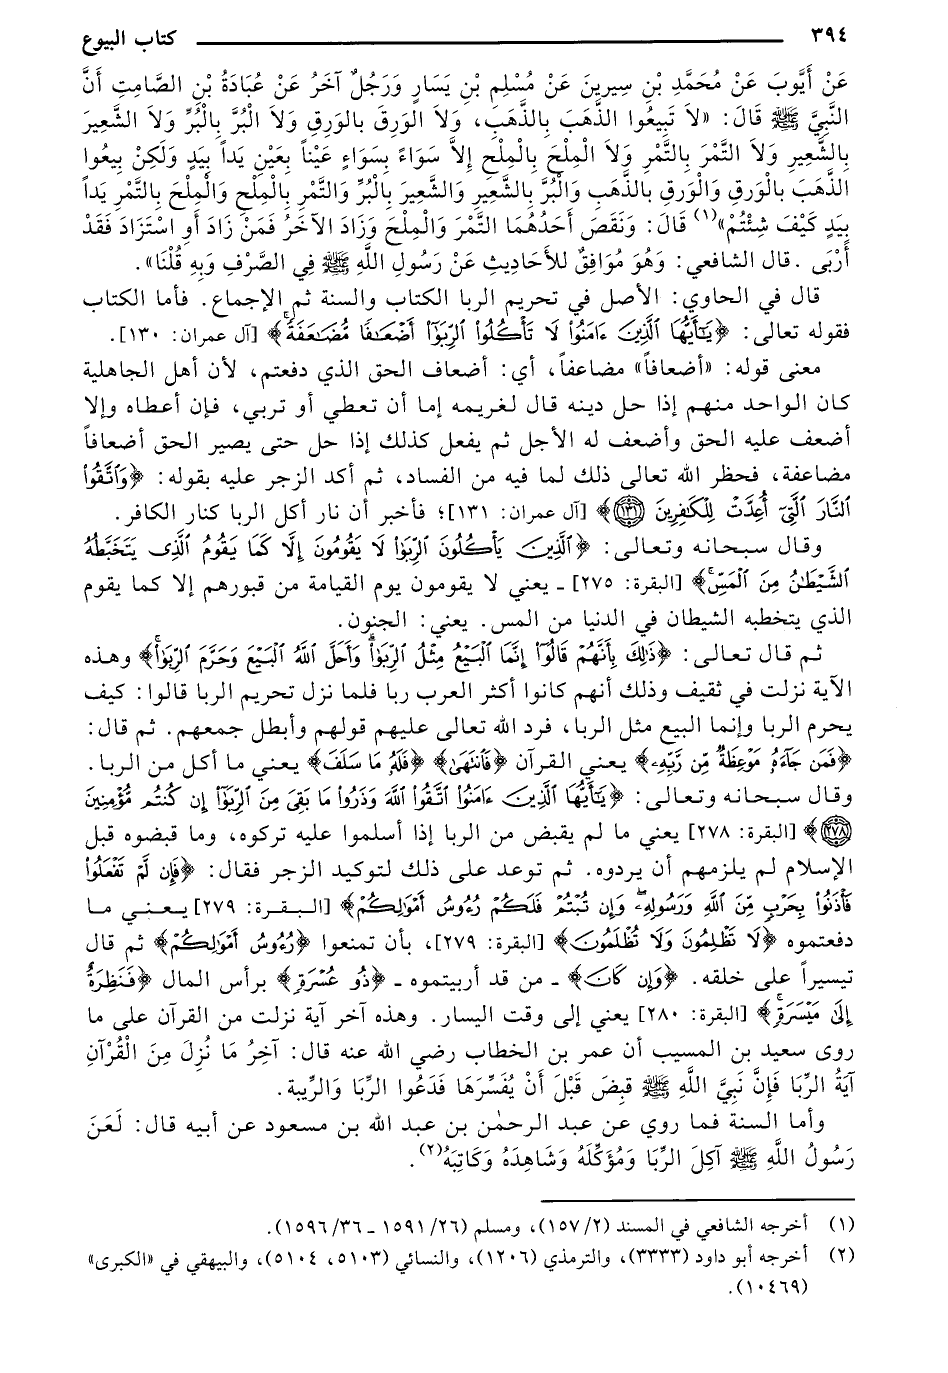 ٣٩٤ كتاب البيوع
عَنْ أَيُّوبَ عَنْ مُحَمَّدِ بْنِ سِيرِينَ عَنْ مُسْلِمِ بْنِ يَسَارٍ وَرَجُلٌ آخَرُ عَنْ عُبَادَةُ بْنِ الصَّامِتِ أَنَّ
النبِيَّ ﷺ قَالَ: «لاَ تَبِيعُوا الذَّهَبَ بِالذَّهَبِ، وَلاَ الْوَرِقَ بالوَرِقِ وَلاَ الْبُرَّ بِالْبُرِّ وَلاَ الشَّعِيرَ
بِالشَّعِيرِ وَلاَ التَّمْرَ بِالتَّمْرِ وَلاَ الْمِلْحَ بِالْمِلْحِ إِلاَّ سَوَاءً بِسَوَاءٍ عَيْناً بِعَيْنٍ يَداً بِيَدٍ وَلَكِنْ بِيعُوا
الذَّهَبَ بالْوَرِقِ وَالْوَرِقِ بالذَّهَبِ وَالْبُرَّ بِالشَّعِيرِ وَالشَّعِيرَ بِالْبُرِّ وَالتَّمْرِ بِالْمِلْحِ وَالْمِلْحَ بِالتَّمْرِ يَداً
بِيَدٍ كَيْفَ شِئْتُمْ»(١) قَالَ: وَنَقَصَ أَحَدُهُمَا التَّمْرَ وَالْمِلْحَ وَزَادَ الآخَرُ فَمَنْ زَادَ أَوِ اسْتَزَادَ فَقَدْ
أَرْبَى. قال الشافعي: وَهُوَ مُوَافِقٌ للأَحَادِيثِ عَنْ رَسُولِ اللَّهِ ﷺ فِي الصَّرْفِ وَبِهِ قُلْنَا».
قال في الحاوي: الأصل في تحريم الربا الكتاب والسنة ثم الإجماع. فأما الكتاب
فقوله تعالى: ﴿يَٰٓأَيُّهَا ٱلَّذِينَ ءَامَنُوا۟ لَا تَأْكُلُوا۟ ٱلرِّبَوٰٓا۟ أَضْعَٰفًا مُّضَٰعَفَةً﴾ [آل عمران: ١٣٠].
معنى قوله: «أضعافاً» مضاعفاً، أي: أضعاف الحق الذي دفعتم، لأن أهل الجاهلية
كان الواحد منهم إذا حل دينه قال لغريمه إما أن تعطي أو تربي، فإن أعطاه وإلا
أضعف عليه الحق وأضعف له الأجل ثم يفعل كذلك إذا حل حتى يصير الحق أضعافاً
مضاعفة، فحظر الله تعالى ذلك لما فيه من الفساد، ثم أكد الزجر عليه بقوله: ﴿وَٱتَّقُوا۟
ٱلنَّارَ ٱلَّتِىٓ أُعِدَّتْ لِلْكَٰفِرِينَ ١٣١﴾ [آل عمران: ١٣١]؛ فأخبر أن نار أكل الربا كنار الكافر.
وقال سبحانه وتعالى: ﴿ٱلَّذِينَ يَأْكُلُونَ ٱلرِّبَوٰا۟ لَا يَقُومُونَ إِلَّا كَمَا يَقُومُ ٱلَّذِى يَتَخَبَّطُهُ
ٱلشَّيْطَٰنُ مِنَ ٱلْمَسِّ﴾ [البقرة: ٢٧٥] ـ يعني لا يقومون يوم القيامة من قبورهم إلا كما يقوم
الذي يتخطبه الشيطان في الدنيا من المس. يعني: الجنون.
ثم قال تعالى: ﴿ذَٰلِكَ بِأَنَّهُمْ قَالُوٓا۟ إِنَّمَا ٱلْبَيْعُ مِثْلُ ٱلرِّبَوٰا۟ وَأَحَلَّ ٱللَّهُ ٱلْبَيْعَ وَحَرَّمَ ٱلرِّبَوٰا۟﴾ وهذه
الآية نزلت في ثقيف وذلك أنهم كانوا أكثر العرب ربا فلما نزل تحريم الربا قالوا: كيف
يحرم الربا وإنما البيع مثل الربا، فرد الله تعالى عليهم قولهم وأبطل جمعهم. ثم قال:
﴿فَمَن جَآءَهُۥ مَوْعِظَةٌ مِّن رَّبِّهِۦ﴾ يعني القرآن ﴿فَٱنتَهَىٰ﴾ ﴿فَلَهُۥ مَا سَلَفَ﴾ يعني ما أكل من الربا.
وقال سبحانه وتعالى: ﴿يَٰٓأَيُّهَا ٱلَّذِينَ ءَامَنُوا۟ ٱتَّقُوا۟ ٱللَّهَ وَذَرُوا۟ مَا بَقِىَ مِنَ ٱلرِّبَوٰٓا۟ إِن كُنتُم مُّؤْمِنِينَ
٢٧٨﴾ [البقرة: ٢٧٨] يعني ما لم يقبض من الربا إذا أسلموا عليه تركوه، وما قبضوه قبل
الإسلام لم يلزمهم أن يردوه. ثم توعد على ذلك لتوكيد الزجر فقال: ﴿فَإِن لَّمْ تَفْعَلُوا۟
فَأْذَنُوا۟ بِحَرْبٍ مِّنَ ٱللَّهِ وَرَسُولِهِۦ وَإِن تُبْتُمْ فَلَكُمْ رُءُوسُ أَمْوَٰلِكُمْ﴾ [البقرة: ٢٧٩] يعني ما
دفعتموه ﴿لَا تَظْلِمُونَ وَلَا تُظْلَمُونَ﴾ [البقرة: ٢٧٩]، بأن تمنعوا ﴿رُءُوسُ أَمْوَٰلِكُمْ﴾ ثم قال
تيسيراً على خلقه. ﴿وَإِن كَانَ﴾ ـ من قد أربيتموه ـ ﴿ذُو عُسْرَةٍ﴾ برأس المال ﴿فَنَظِرَةٌ
إِلَىٰ مَيْسَرَةٍ﴾ [البقرة: ٢٨٠] يعني إلى وقت اليسار. وهذه آخر آية نزلت من القرآن على ما
روى سعيد بن المسيب أن عمر بن الخطاب رضي الله عنه قال: آخِرُ مَا نُزِلَ مِنَ الْقُرْآنِ
آيَةُ الرِّبَا فَإِنَّ نَبِيَّ اللَّهِ ﷺ قبِضَ قَبْلَ أَنْ يُفَسِّرَهَا فَدَعُوا الرِّبَا وَالرِّيبة.
وأما السنة فما روي عن عبد الرحمٰن بن عبد الله بن مسعود عن أبيه قال: لَعَنَ
رَسُولُ اللَّهِ ﷺ آكِلَ الرِّبَا وَمُؤَكِّلَهُ وَشَاهِدَهُ وَكَاتِبَهُ(٢).
(١) أخرجه الشافعي في المسند (١٥٧/٢)، ومسلم (١٥٩١/٢٦ ـ ١٥٩٦/٣٦).
(٢) أخرجه أبو داود (٣٣٣٣)، والترمذي (١٢٠٦)، والنسائي (٥١٠٣، ٥١٠٤)، والبيهقي في «الكبرى»
(١٠٤٦٩).